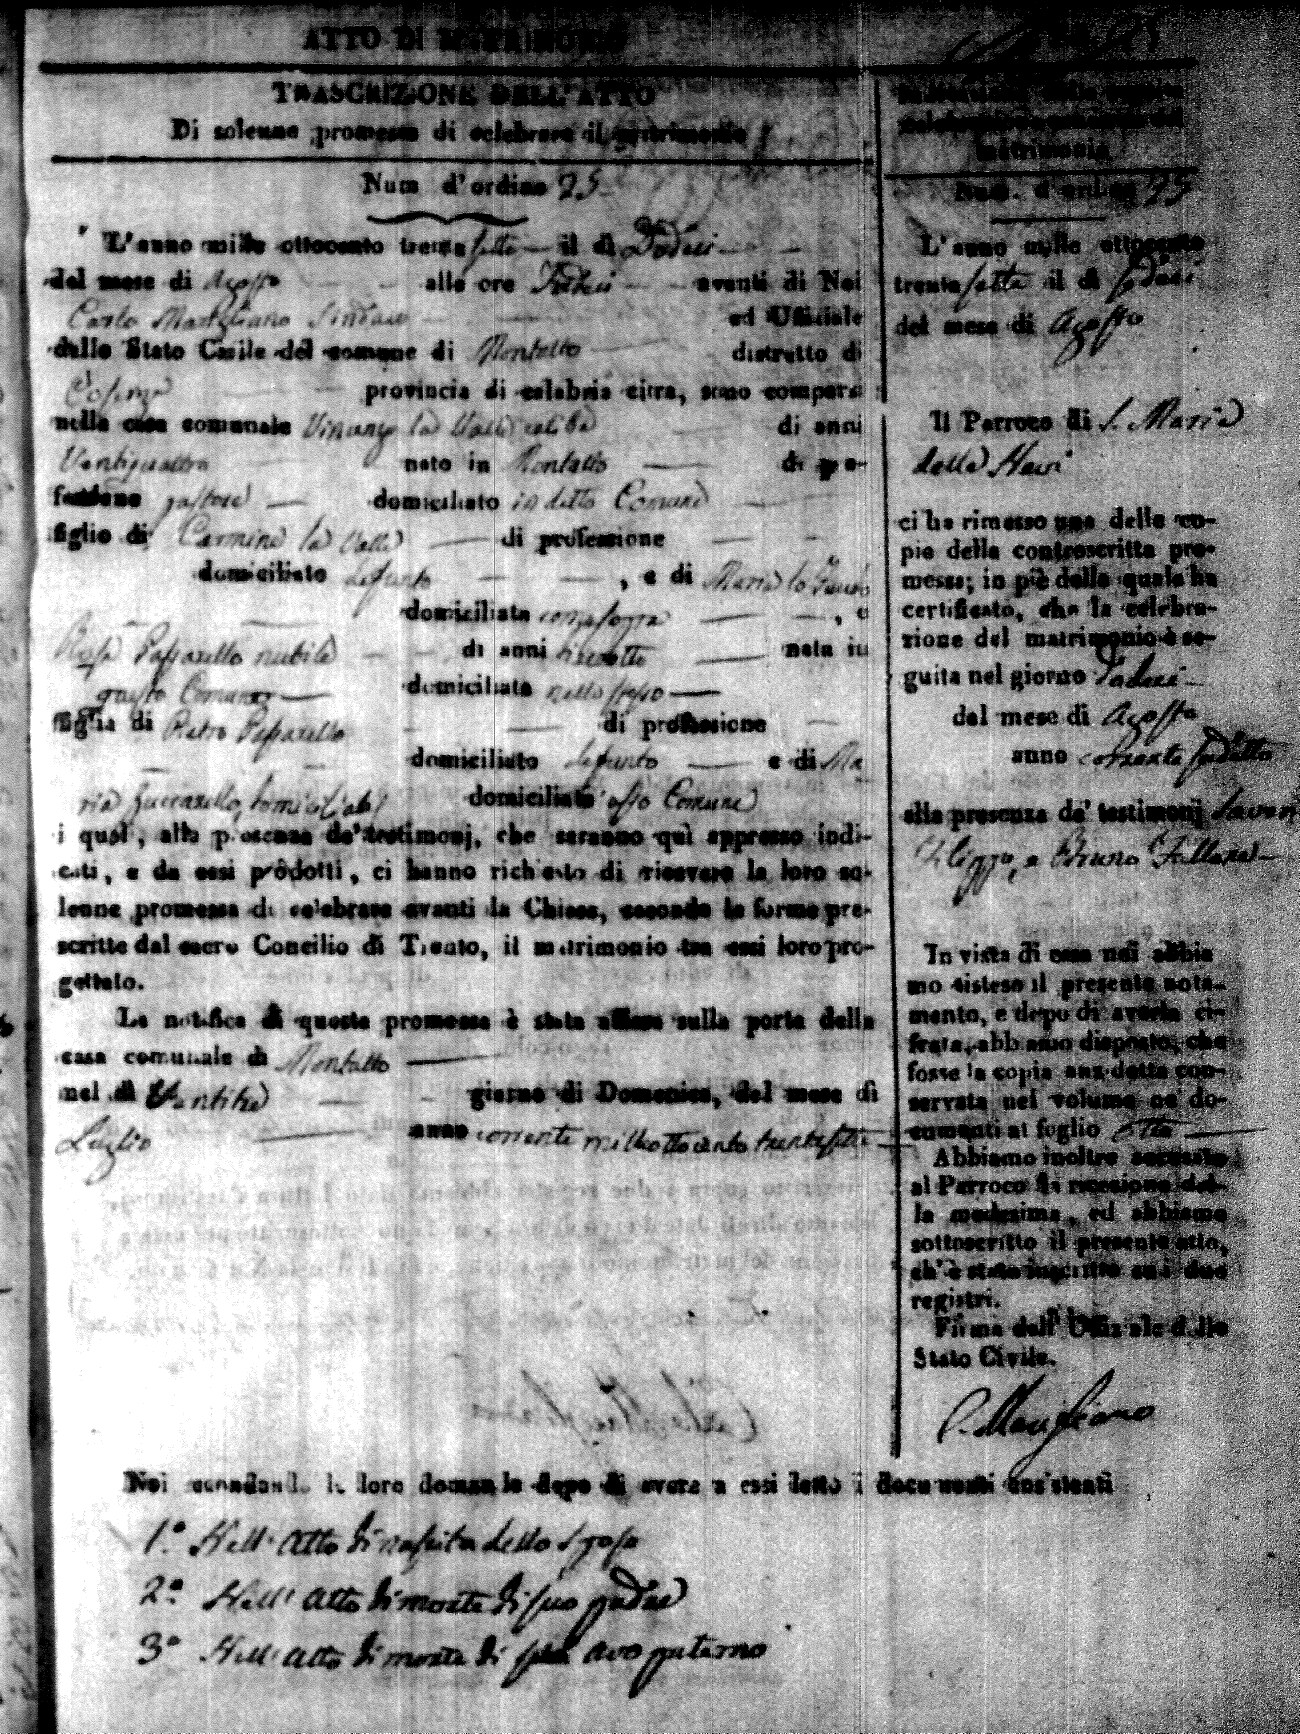 ATTO DI MATRIMONIO
TRASCRIZIONE DELL'ATTO
Di solenne promessa di celebrare il matrimonio
Num d'ordine 25
L'anno mille ottocento trenta sette il dì Dodeci
del mese di Agosto alle ore Tredeci avanti di Noi
Carlo Sindaco ed Uffiziale
dello Stato Civile del comune di Montalto distretto di
Cosenza provincia di calabria citra, sono comparsi
nella casa comunale Vincenzo la Valle celibe di anni
Ventiquattro nato in Montalto di pro-
fessione pastore domiciliato in detto Comune
figlio di Carmine la Valle di professione
domiciliato defunto , e di Maria lo
domiciliata come sopra , e
Rosa Passarello nubile di anni nata in
questo Comune domiciliata nello stesso
figlia di Pietro Passarello di professione
domiciliato defunto e di Ma
ria Zuccarello, domiciliata domiciliato esso Comune
i quali, alla presenza de' testimonj, che saranno quì appresso indi-
cati, e da essi prodotti, ci hanno richiesto di ricevere la loro so-
lenne promessa di celebrare avanti la Chiesa, secondo le forme pre-
scritte dal sacro Concilio di Trento, il matrimonio tra essi loro pro-
gettato.
La notifica di questa promessa è stata affissa sulla porta della
casa comunale di Montalto
nel dì Ventitre giorno di Domenica, del mese di
Luglio anno corrente milleottocento trentasette
Noi secondando le loro domande dopo di avere a essi letto i documenti consistenti
1.° Nell'Atto di nascita dello sposo
2.° Nell'atto di morte di suo padre
3° Nell'atto di morte di suo avo paterno
matrimonio
Num. d'ordine 25
L'anno mille ottocento
trenta sette il dì Dodeci
del mese di Agosto
Il Parroco di S. Maria
della Neve
ci ha rimesso una delle co-
pie della controscritta pro-
messa; in piè della quale ha
certificato, che la celebra-
zione del matrimonio è se-
guita nel giorno Dodeci
del mese di Agosto
anno corrente suddetto
alla presenza de' testimonj
e Bruno
In vista di essa noi abbia
mo disteso il presente nota-
mento, e dopo di averla ci-
frata, abbiamo disposto, che
fosse la copia anzidetta con-
servata nel volume de' do-
cumenti al foglio otto
Abbiamo inoltre accusato
al Parroco la ricezione del-
la medesima, ed abbiamo
sottoscritto il presente atto,
ch'è stato inscritto sui due
registri.
Firma dell'Uffiziale dello
Stato Civile.